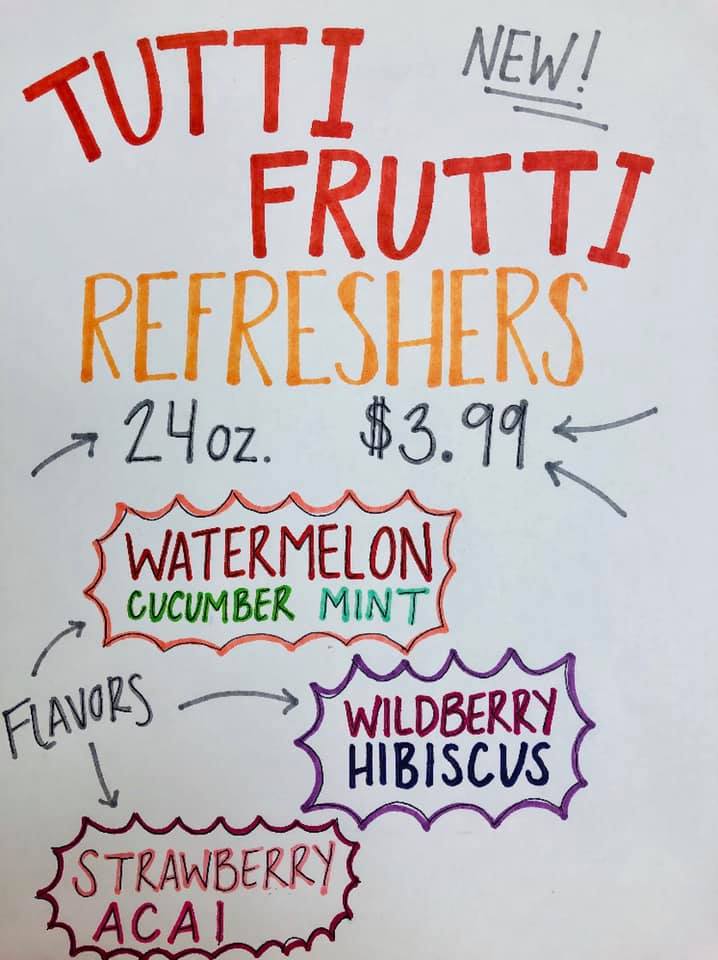 TUTTI
NEW!
FRUTTI
REFRESHERS
24oz. $3.99
WATERMELON
CUCUMBER MINT
FLAVORS
WILDBERRY
HIBISCUS
STRAWBERRY
ACAI